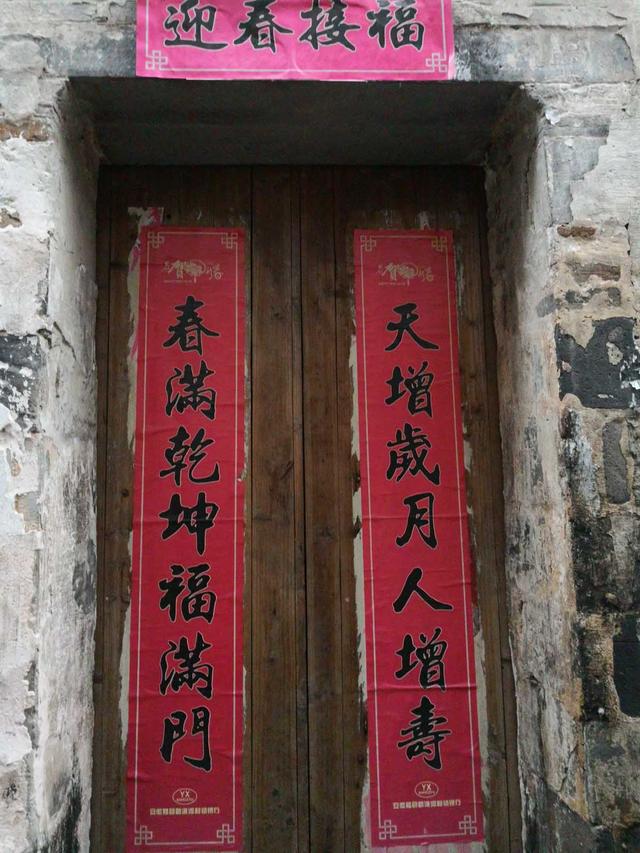 迎春接福
天增歲月人增壽
春滿乾坤福滿門
YX
YX